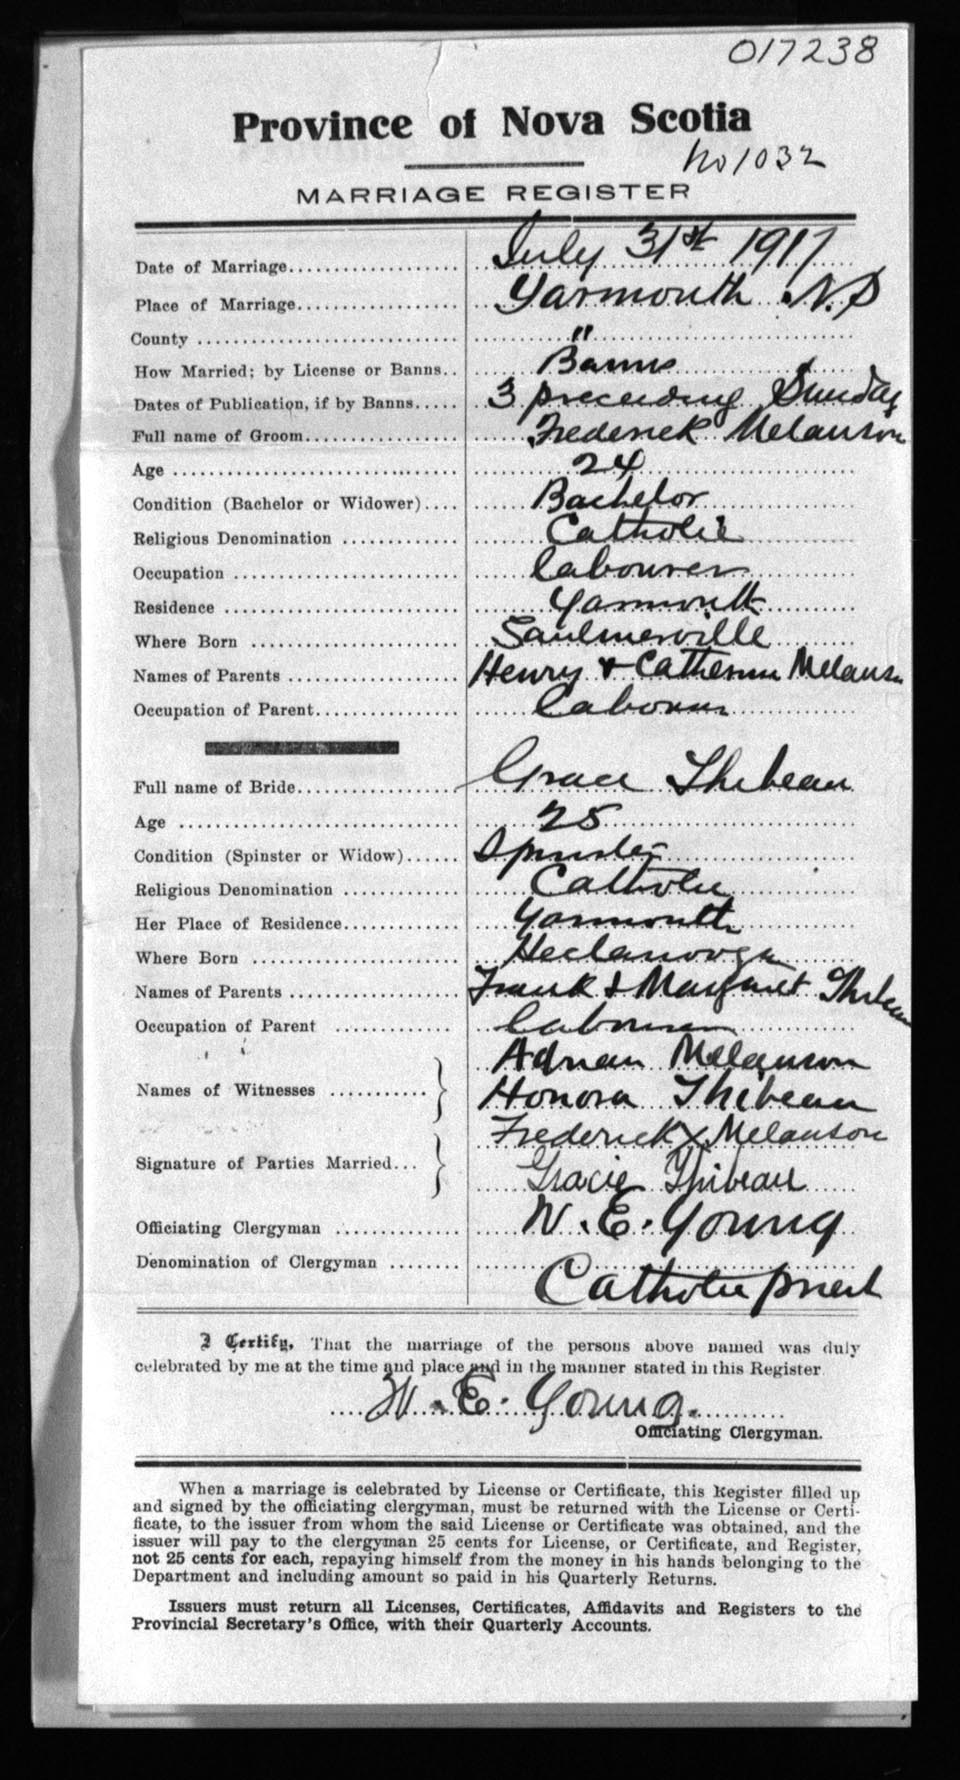 017238
Province of Nova Scotia
No 1032
MARRIAGE REGISTER
Date of Marriage July 31st 1917
Place of Marriage Yarmouth N.S
County "
How Married; by License or Banns Banns
Dates of Publication, if by Banns 3 preceeding Sunday
Full name of Groom Frederick Melanson
Age 24
Condition (Bachelor or Widower) Bachelor
Religious Denomination Catholic
Occupation labourer
Residence Yarmouth
Where Born Saulnierville
Names of Parents Henry & Catherine Melanson
Occupation of Parent labourer
Full name of Bride Grace Thibeau
Age 25
Condition (Spinster or Widow) Spinster
Religious Denomination Catholic
Her Place of Residence Yarmouth
Where Born Hectanooga
Names of Parents Frank & Margaret Thibeau
Occupation of Parent labourer
Adrian Melanson
Names of Witnesses
Honora Thibeau
Frederick X Melanson
Signature of Parties Married
Gracie Thibeau
Officiating Clergyman W. E. Young
Denomination of Clergyman Catholic priest
I Certify, That the marriage of the persons above named was duly
celebrated by me at the time and place and in the manner stated in this Register
W. E. Young.
Officiating Clergyman.
When a marriage is celebrated by License or Certificate, this Register filled up
and signed by the officiating clergyman, must be returned with the License or Certi-
ficate, to the issuer from whom the said License or Certificate was obtained, and the
issuer will pay to the clergyman 25 cents for License, or Certificate, and Register,
not 25 cents for each, repaying himself from the money in his hands belonging to the
Department and including amount so paid in his Quarterly Returns.
Issuers must return all Licenses, Certificates, Affidavits and Registers to the
Provincial Secretary's Office, with their Quarterly Accounts.